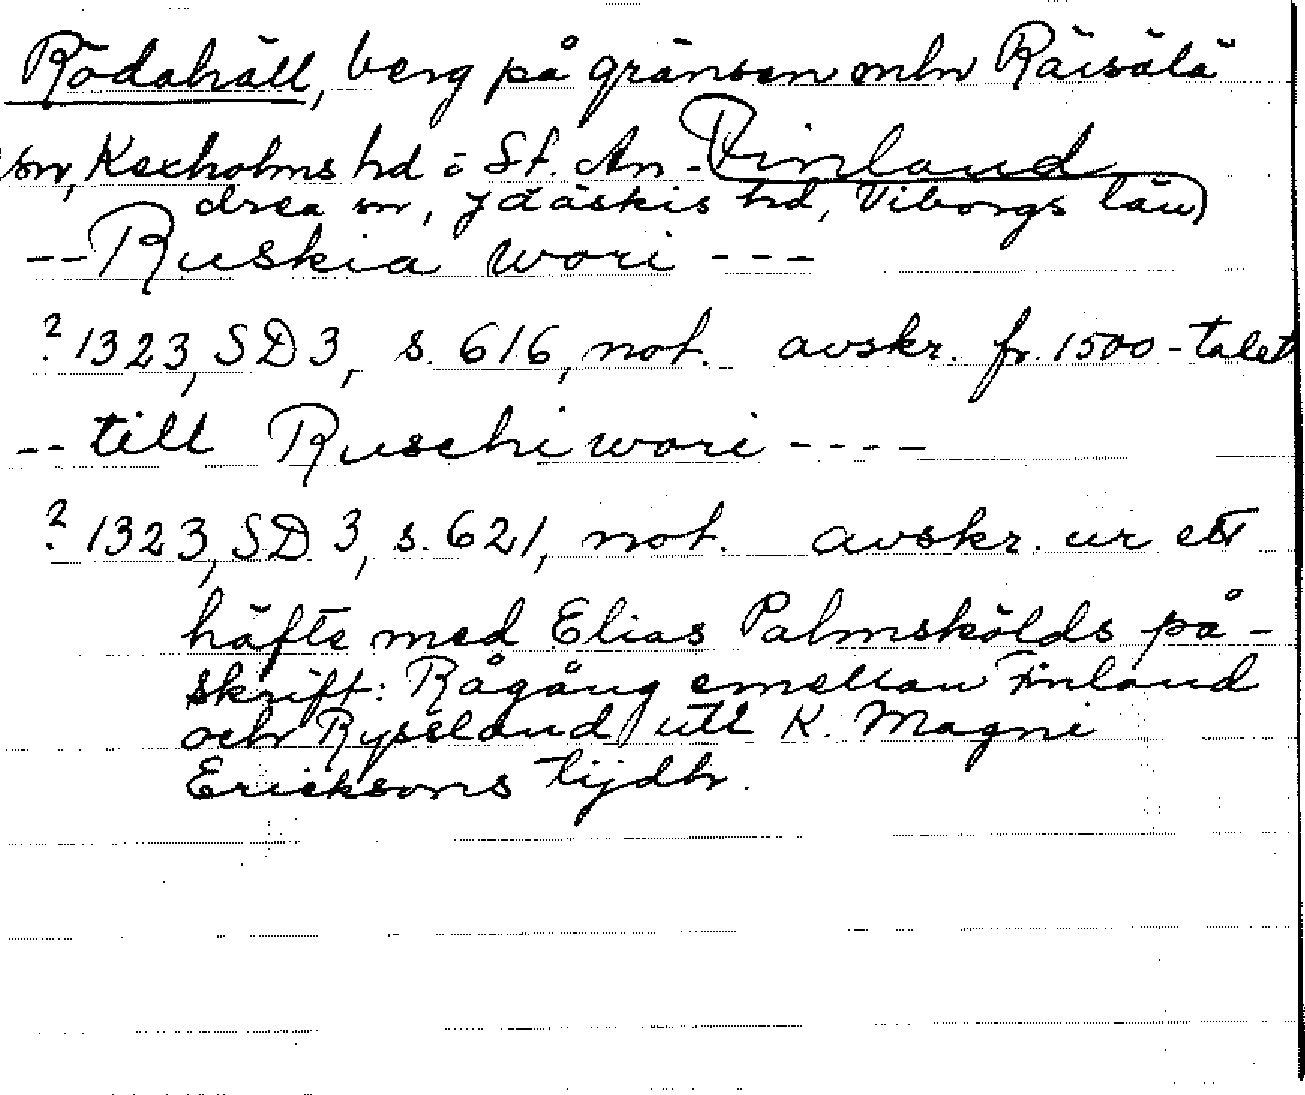 Rödahäll, berg på gränsen mln Räisälä
sn, Kexholms hd o St. An- Finland
drea sn, Jääskis hd, Viborgs län)
-- Ruskia wori ---
? 1323, SD 3, s. 616, not. avskr. fr. 1500-talet
-- till Ruschi wori ----
? 1323, SD 3, s. 621, not. avskr. ur ett
häfte med Elias Palmskölds på-
skrift: Rågång emellan Finland
och Rysseland utl K. Magni
Ericksons tijdh.